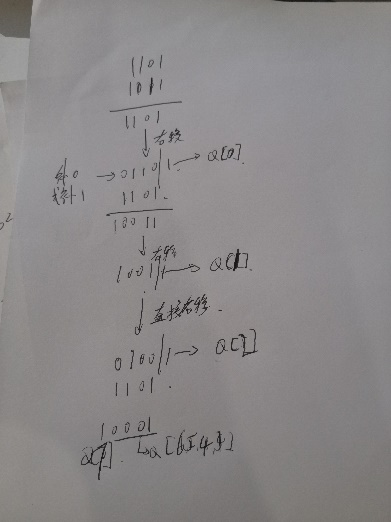 1101
1011
1101
右移
补0 → 0110|1 → Q[0]
或补1 1101
10011
右移
1001|1 → Q[1]
直接右移
0100|1 → Q[2]
1101
10001
Q[7] → Q[6,5,4,3]